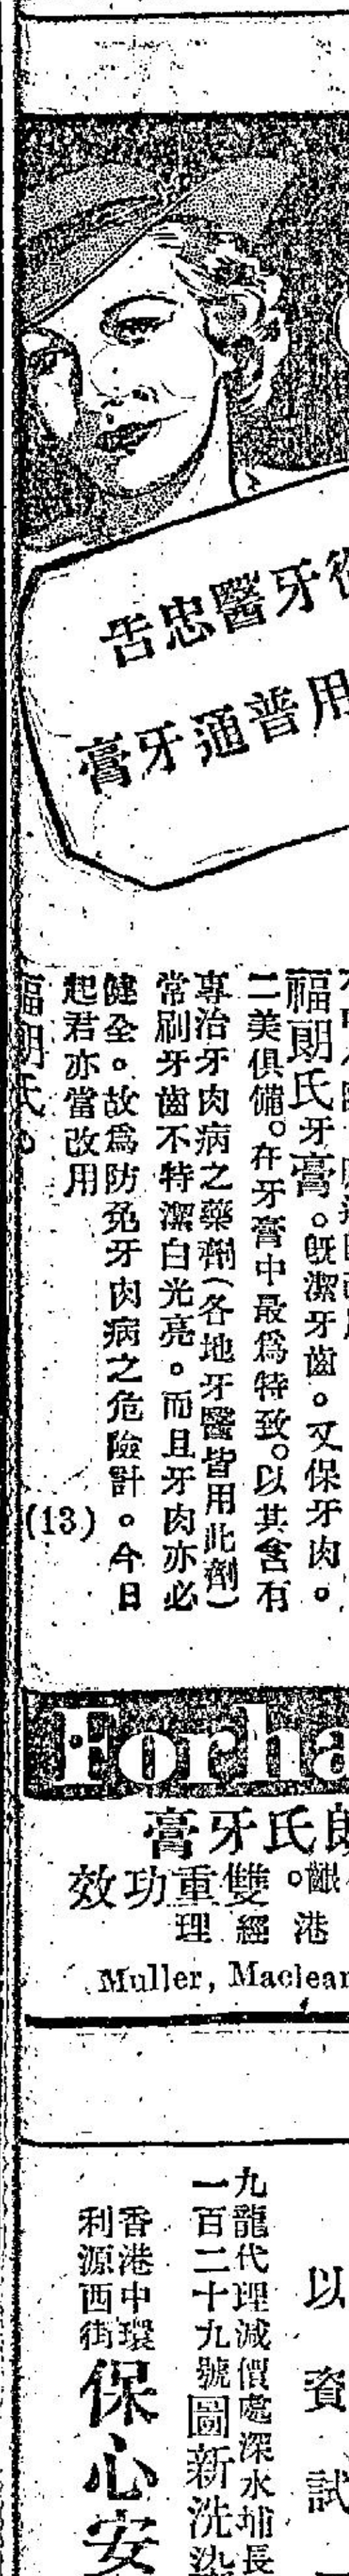 從牙醫忠告
用普通牙膏
福朗氏牙膏。既潔牙齒。又保牙肉。
二美俱備。在牙膏中最爲特致。以其含有
專治牙肉病之藥劑(各地牙醫皆用此劑)
常刷牙齒不特潔白光亮。而且牙肉亦必
健全。故爲防免牙肉病之危險計。今日
起君亦當改用
福朗氏。
(13)
Forha
朗氏牙膏
齦。雙重功效
港經理
Muller, Maclean
以資試
九龍代理減價處深水埔長
一百二十九號圖新洗染
香港中環
利源西街
保心安